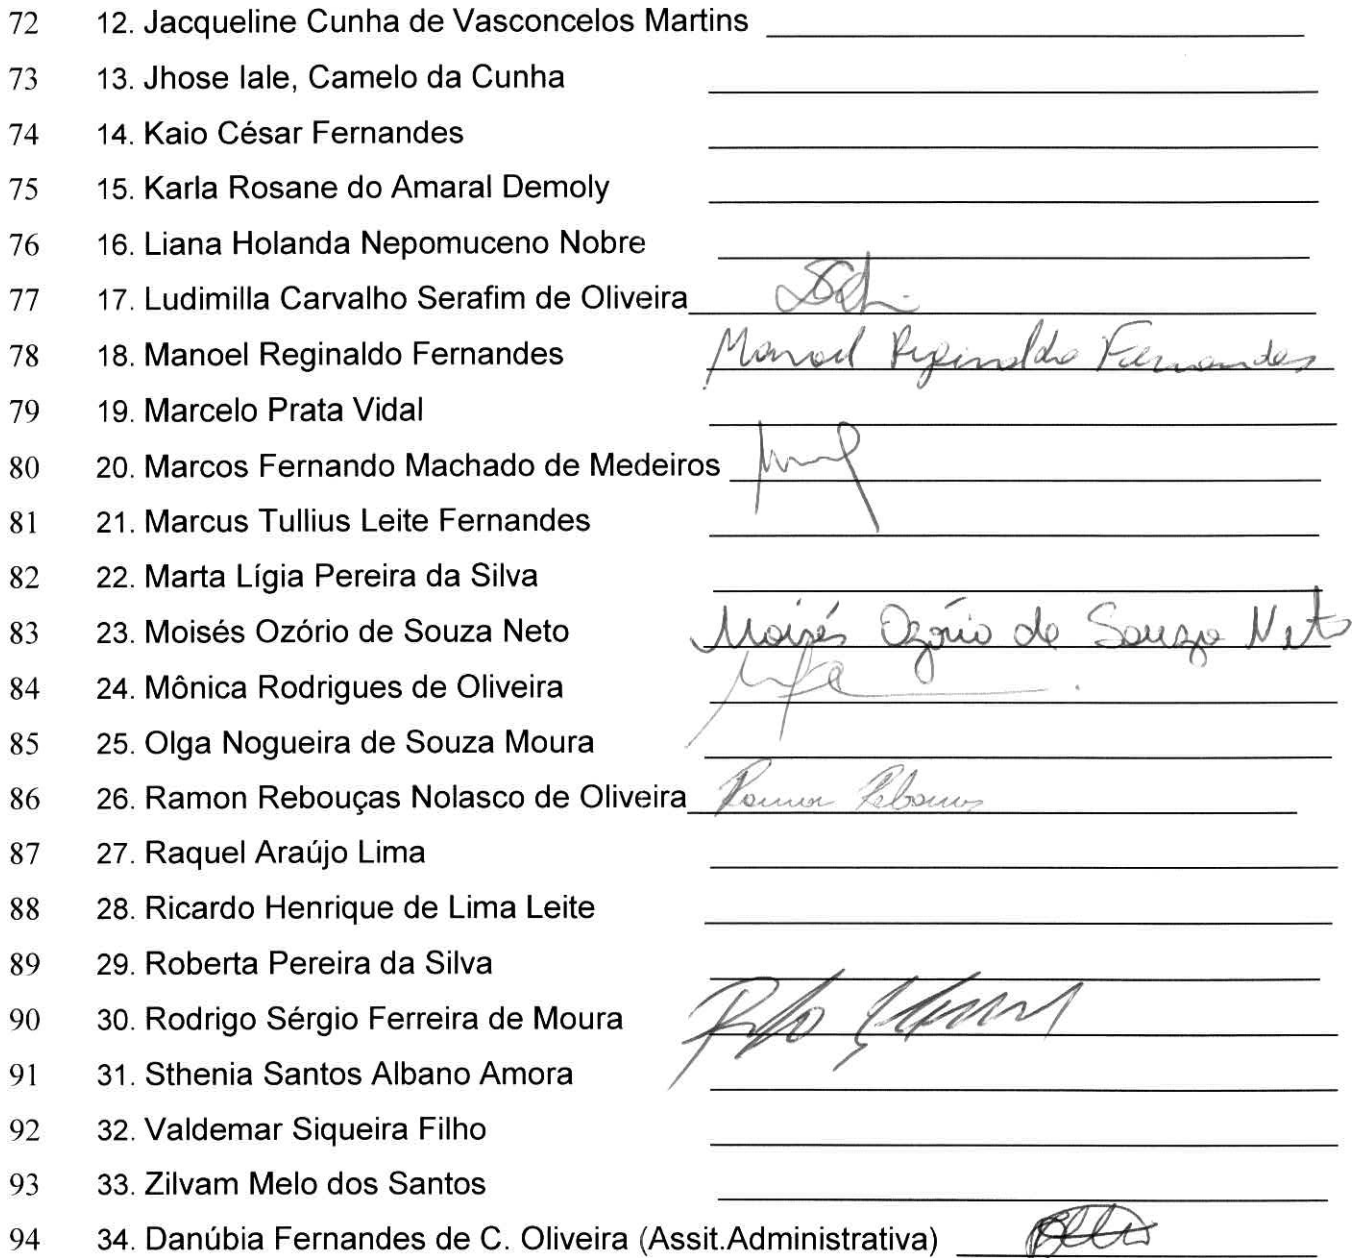 72 12. Jacqueline Cunha de Vasconcelos Martins
73 13. Jhose Iale, Camelo da Cunha
74 14. Kaio César Fernandes
75 15. Karla Rosane do Amaral Demoly
76 16. Liana Holanda Nepomuceno Nobre
77 17. Ludimilla Carvalho Serafim de Oliveira
78 18. Manoel Reginaldo Fernandes Manoel Reginaldo Fernandes
79 19. Marcelo Prata Vidal
80 20. Marcos Fernando Machado de Medeiros
81 21. Marcus Tullius Leite Fernandes
82 22. Marta Lígia Pereira da Silva
83 23. Moisés Ozório de Souza Neto Moisés Ozório de Souza Neto
84 24. Mônica Rodrigues de Oliveira
85 25. Olga Nogueira de Souza Moura
86 26. Ramon Rebouças Nolasco de Oliveira Ramon Rebouças
87 27. Raquel Araújo Lima
88 28. Ricardo Henrique de Lima Leite
89 29. Roberta Pereira da Silva
90 30. Rodrigo Sérgio Ferreira de Moura
91 31. Sthenia Santos Albano Amora
92 32. Valdemar Siqueira Filho
93 33. Zilvam Melo dos Santos
94 34. Danúbia Fernandes de C. Oliveira (Assit.Administrativa)